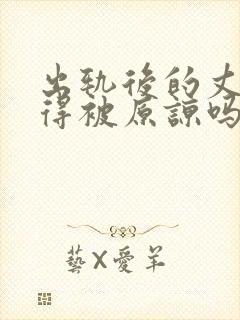 出轨後的丈
得被原諒吗
藝X愛羊